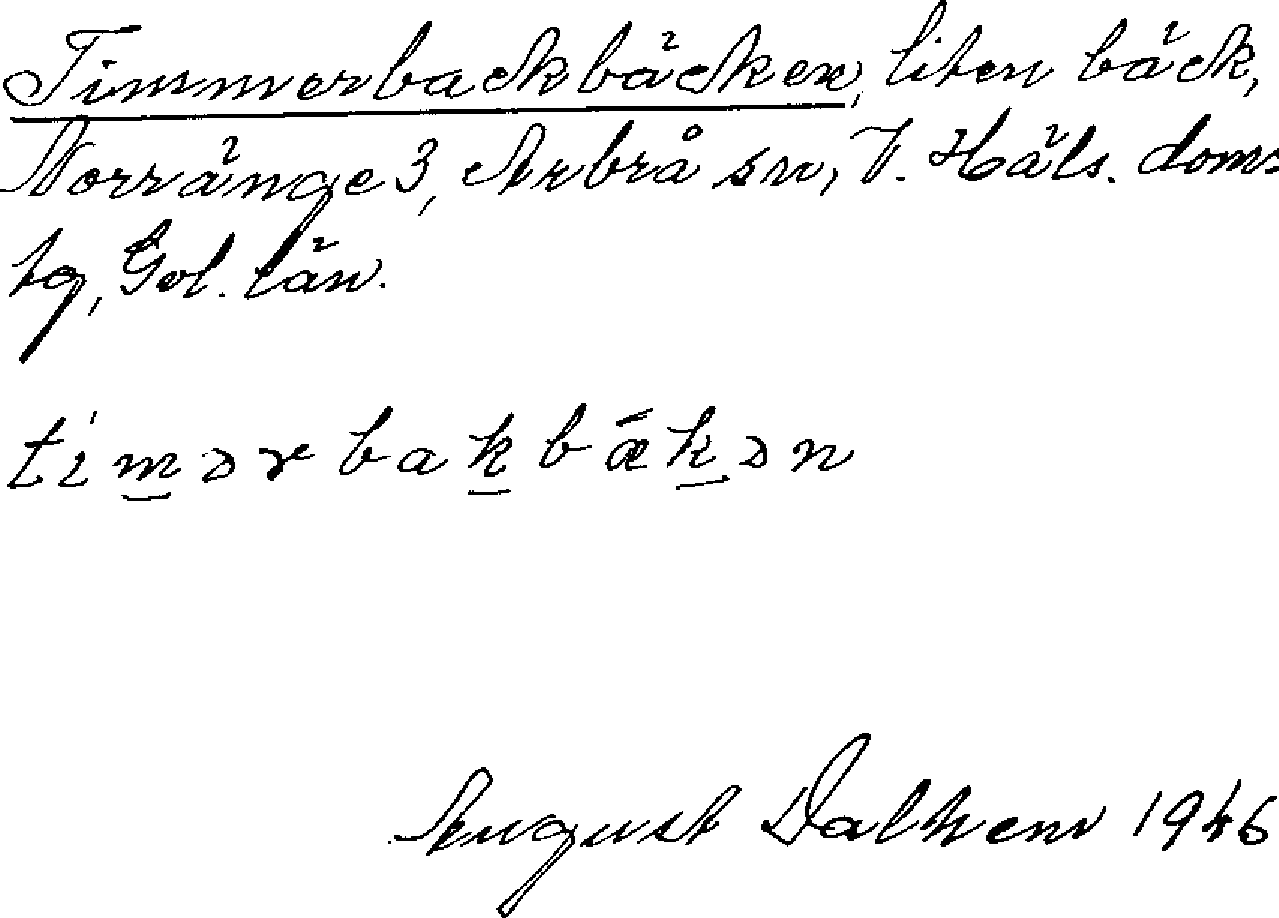 Timmerbackbäcken, liten bäck,
Norränge 3, Arbrå sn, V. Häls. doms-
tg, Gvl. län.
tímərbakbǽkən
August Dalhem 1946